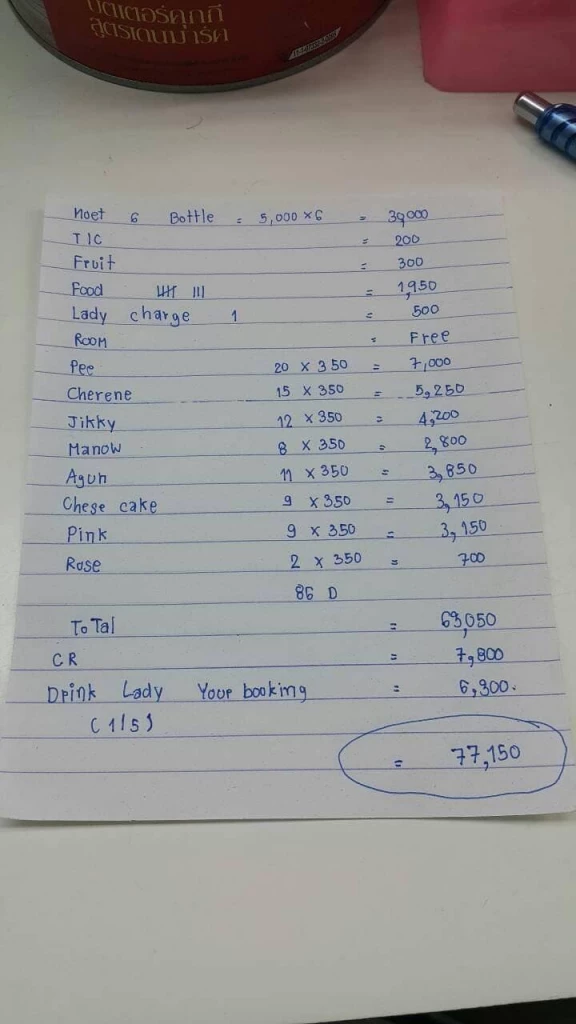 บัตเตอร์คุกกี้
สูตรเดนมาร์ค
Moet 6 Bottle = 5,000 x 6 = 30,000
TIC = 200
Fruit = 300
Food 卌 III = 1,950
Lady charge 1 = 500
Room = Free
Pee 20 x 350 = 7,000
Cherene 15 x 350 = 5,250
Jikky 12 x 350 = 4,200
Manow 8 x 350 = 2,800
Agun 11 x 350 = 3,850
Chese cake 9 x 350 = 3,150
Pink 9 x 350 = 3,150
Rose 2 x 350 = 700
86 D
ToTal = 63,050
CR = 7,800
Drink Lady Your booking = 6,300.
(1/5)
= 77,150